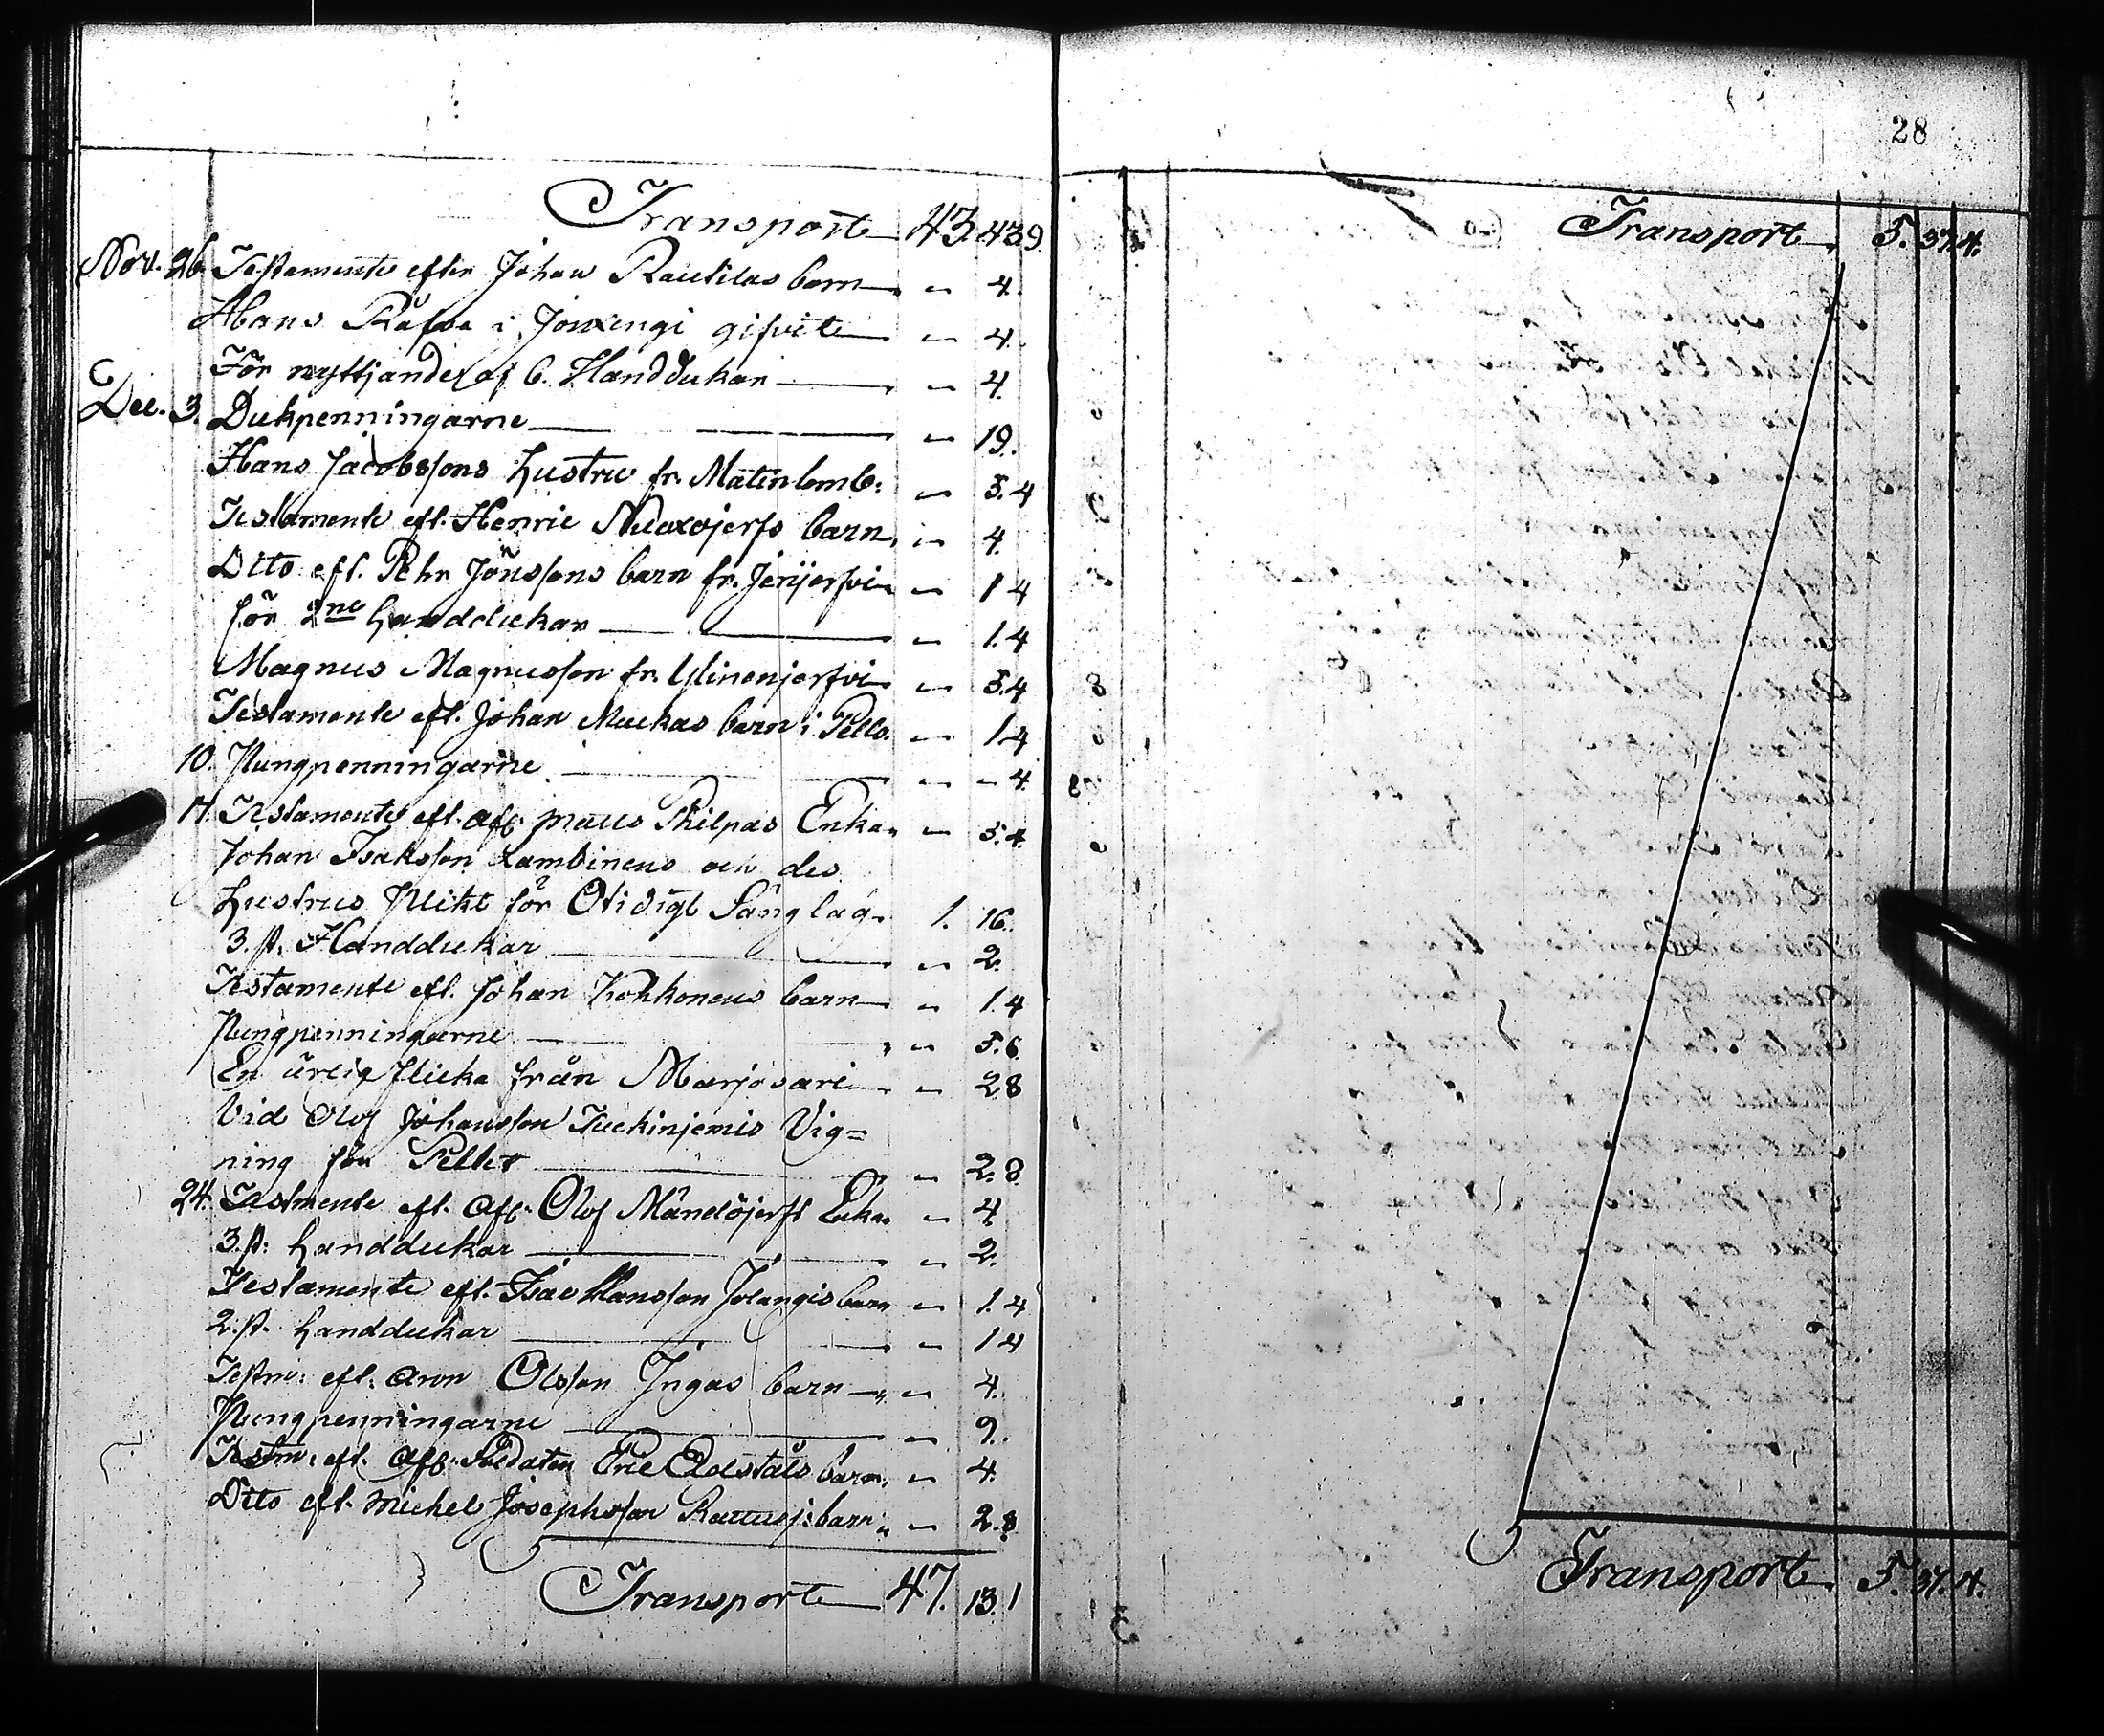 Transport 43. 43.9
Nov. 26. Testamente efter Johan Rautilas barn " 4.
Hans Råfva i Jouxengi gifvit " 4.
För nyttjande af 6. Handdukar " 4.
Dec. 3. Dukpenningarne " 19.
Hans Jacobssons hustru fr. Matinlomb: " 5.4
Testamente eft. Henric barn " 4.
Dito eft. Pehr Jönssons barn fr. Jerijerfvi " 1.4
för 2ne handdukar " 1.4
Magnus Magnusson fr. Ylinenjerfvi " 5.4
Testamente eft. Johan Muckas barn i Pello " 1.4
10. Pungpenningarne " " 4.
17. Testamente eft. afl. Philpas Enka " 5.4.
Johan Isaksson Lambinens och des
hustrus plikt för Otidigt Sänglag. 1. 16.
3. st. Handdukar " 2.
Testamente eft. Johan Kokkonens barn " 1.4
Pungpenningarne " 5.6.
En ärlig flicka från Marjosari " 2.8
Vid Olof Johansson Juckinjemis Vig=
ning för Pellet " 2.8.
24. Testmente eft. afl. Olof Enka " 4.
3. st: handdukar " 2.
Testamente eft. Isac Hansson Jolangis barn " 1.4
2. st. handdukar " 1.4
Testm: eft. Aron Olsson Ingas barn " 4.
Pungpenningarne " 9.
Testm: eft. afl. Soldaten Eric Edståls barn " 4.
Dito eft. Michel Josephsson barn " 2.8
Transport 47. 13.1
28
Transport 5. 37.4.
Transport 5. 37.4.